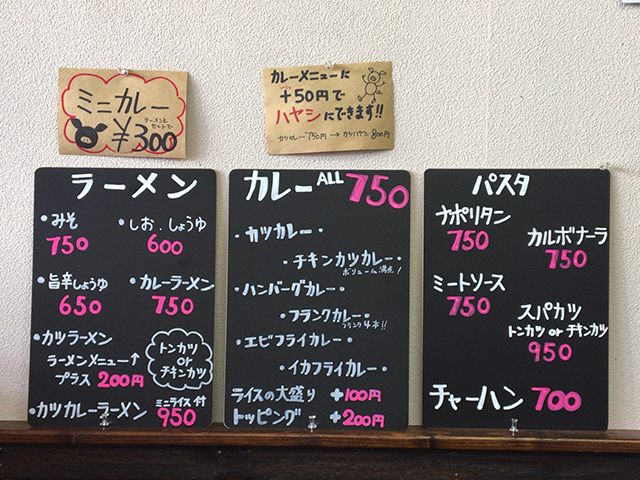 ミニカレー
ラーメンと
セットで
¥300
カレーメニューに
+50円で
ハヤシにできます!!
カツカレー750円→カツハヤシ800円
ラーメン
・みそ
750
・しお、しょうゆ
600
・旨辛しょうゆ
650
・カレーラーメン
750
・カツラーメン
ラーメンメニュー↑
プラス200円
トンカツ
or
チキンカツ
・カツカレーラーメン
ミニライス付
950
カレーALL 750
・カツカレー・
・チキンカツカレー・
ボリューム満点!
・ハンバーグカレー・
・フランクカレー・
フランク4本!!
・エビフライカレー・
・イカフライカレー・
ライスの大盛り +100円
トッピング +200円
パスタ
ナポリタン
750
カルボナーラ
750
ミートソース
750
スパカツ
トンカツ or チキンカツ
950
チャーハン 700